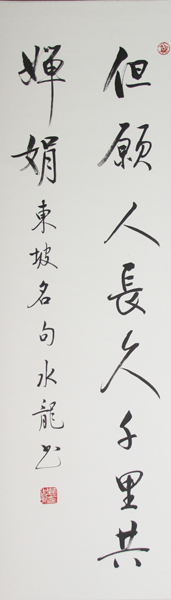 但願人長久千里共
嬋娟東坡名句水龍书